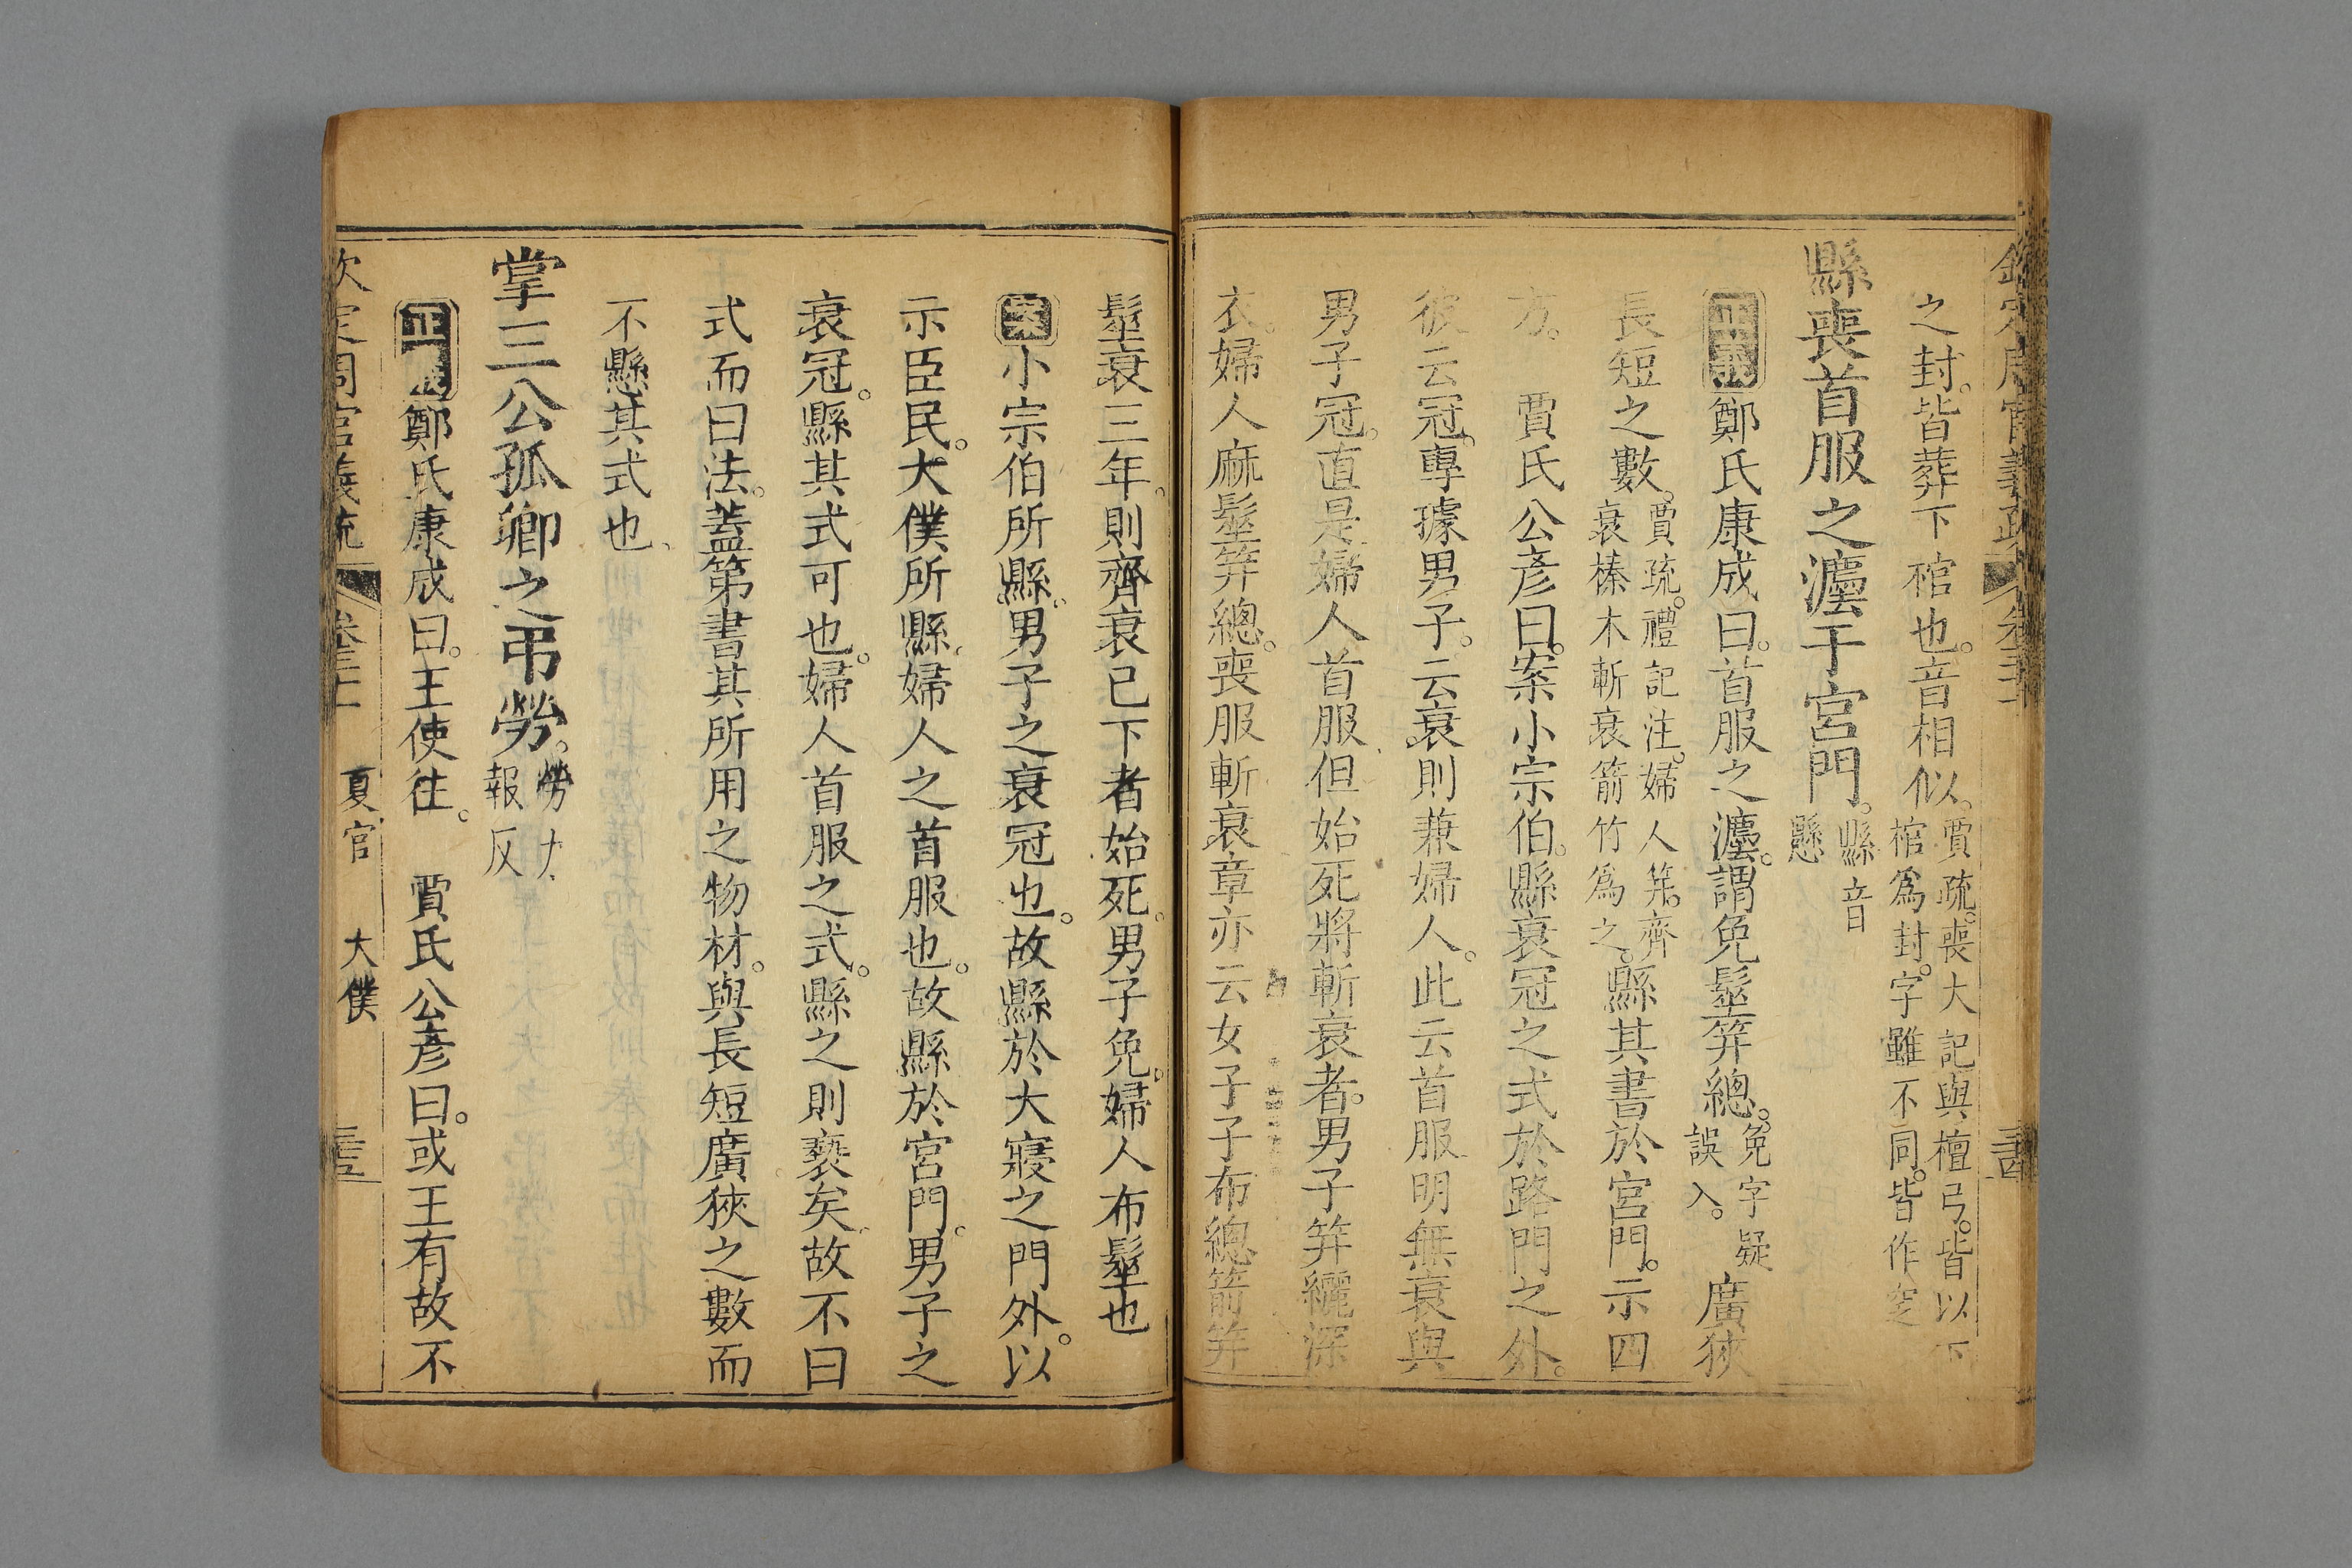 欽定周官義疏 卷三十一 三古
之封。皆葬下棺也。音相似。賈疏。喪大記與檀弓。皆以下棺爲封。字雖不同。皆作窆
縣喪首服之灋于宮門。縣音懸
正義鄭氏康成曰。首服之灋。謂免髽笄總。免字疑誤入。廣狹
長短之數。賈疏。禮記注。婦人笄。齊衰榛木斬衰箭竹爲之。縣其書於宮門。示四
方。 賈氏公彥曰。案小宗伯。縣衰冠之式於路門之外。
彼云冠。專據男子。云衰。則兼婦人。此云首服明無衰與
男子冠。直是婦人首服但始死將斬衰者。男子笄纚深
衣。婦人麻髽笄總。喪服斬衰章亦云女子子布總箭笄
髽衰三年。則齊衰已下者始死。男子免。婦人布髽也
案小宗伯所縣。男子之衰冠也。故縣於大寢之門外。以
示臣民。大僕所縣。婦人之首服也。故縣於宮門。男子之
衰冠。縣其式可也。婦人首服之式。縣之則褻矣。故不曰
式而曰法。蓋第書其所用之物材。與長短廣狹之數而
不懸其式也
掌三公孤卿之弔勞。勞力報反
正義鄭氏康成曰。王使往。 賈氏公彥曰。或王有故不
欽定周官義疏 卷三十一 夏官 大僕